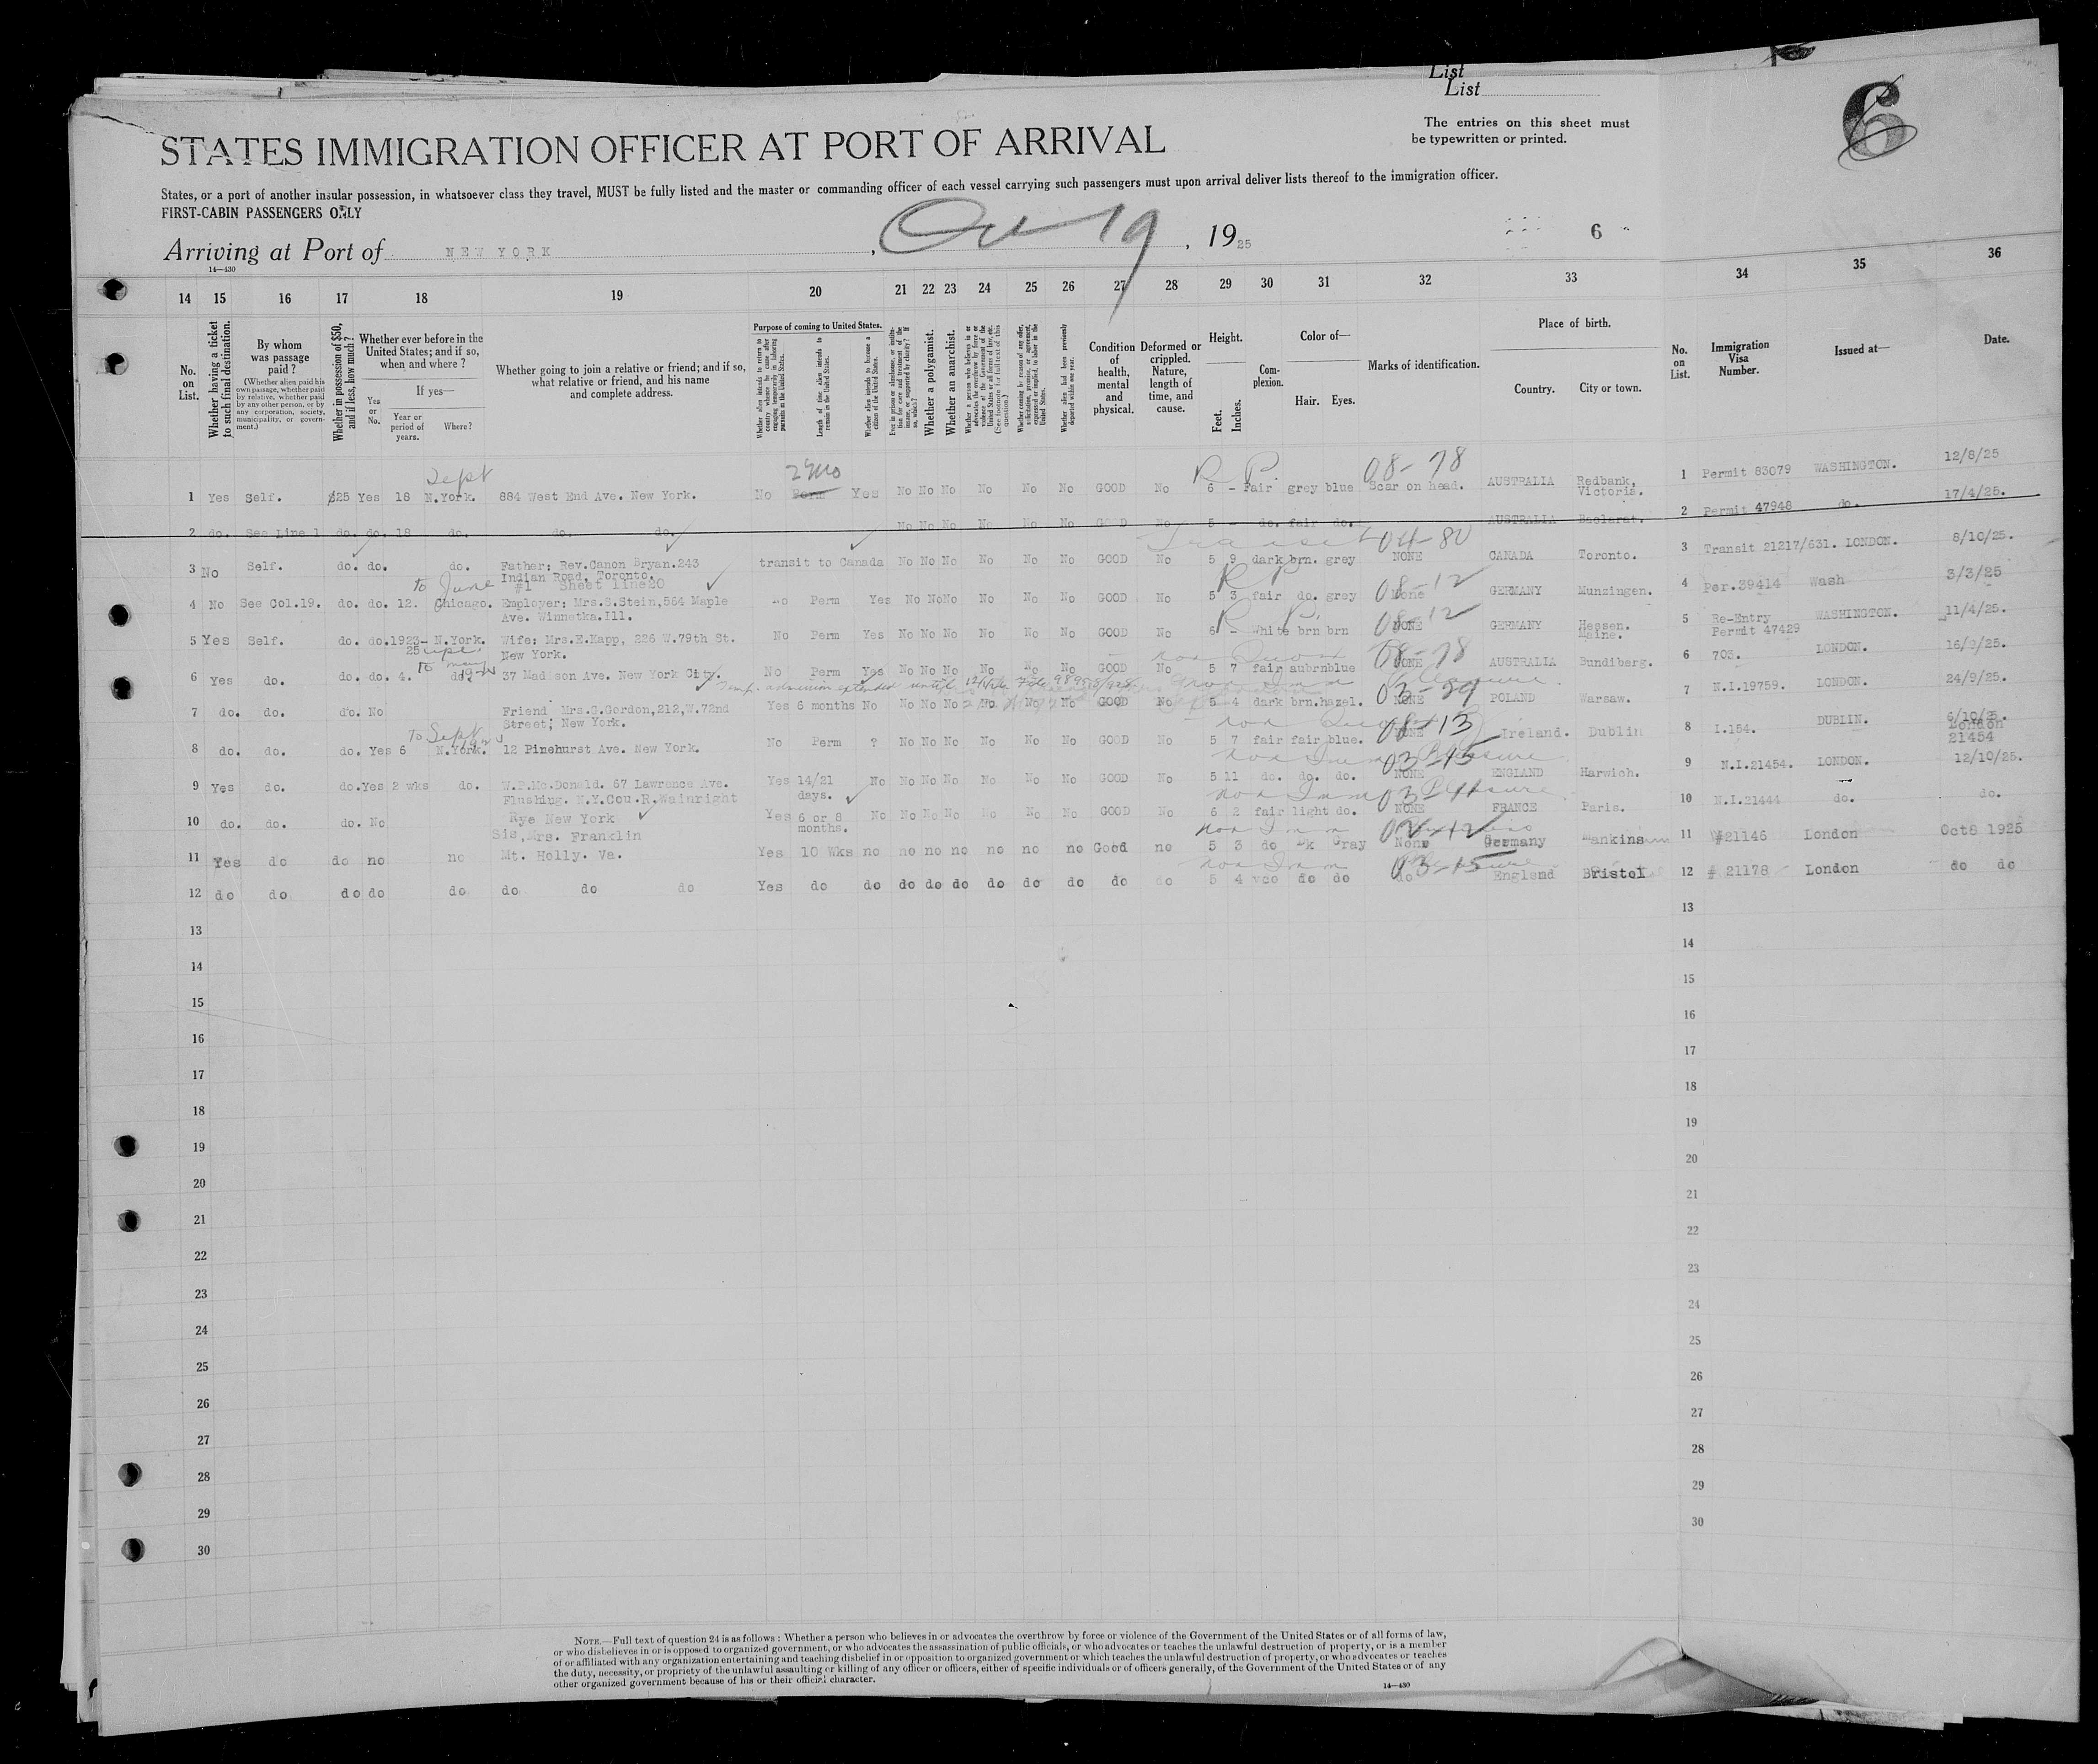 List
List
The entries on this sheet must
be typewritten or printed.
6
STATES IMMIGRATION OFFICER AT PORT OF ARRIVAL
States, or a port of another insular possession, in whatsoever class they travel, MUST be fully listed and the master or commanding officer of each vessel carrying such passengers must upon arrival deliver lists thereof to the immigration officer.
FIRST-CABIN PASSENGERS ONLY
Arriving at Port of NEW YORK, Oct 19, 1925 6
14—430
14 15 16 17 18 19 20 21 22 23 24 25 26 27 28 29 30 31 32 33 34 35 36
No. on List.
Whether having a ticket to such final destination.
By whom was passage paid?
(Whether alien paid his own passage, whether paid by relative, whether paid by any other person, or by any corporation, society, municipality, or government.)
Whether in possession of $50, and if less, how much?
Whether ever before in the United States; and if so, when and where?
If yes—
Yes or No.
Year or period of years.
Where?
Whether going to join a relative or friend; and if so, what relative or friend, and his name and complete address.
Purpose of coming to United States.
Whether alien intends to return to country whence he came after engaging temporarily in laboring pursuits in the United States.
Length of time alien intends to remain in the United States.
Whether alien intends to become a citizen of the United States.
Ever in prison or almshouse, or institution for care and treatment of the insane, or supported by charity? If so, which?
Whether a polygamist.
Whether an anarchist.
Whether a person who believes in or advocates the overthrow by force or violence of the Government of the United States or all forms of law, etc. (See footnote for full text of this question.)
Whether coming by reason of any offer, solicitation, promise, or agreement, expressed or implied, to labor in the United States.
Whether alien had been previously deported within one year.
Condition of health, mental and physical.
Deformed or crippled. Nature, length of time, and cause.
Height.
Feet. Inches.
Complexion.
Color of—
Hair. Eyes.
Marks of identification.
Place of birth.
Country. City or town.
No. on List.
Immigration Visa Number.
Issued at—
Date.
Sept 2 mo R P. 08-78
1 Yes Self. $25 Yes 18 N.York. 884 West End Ave. New York. No Perm Yes No No No No No No GOOD No 6 - Fair grey blue Scar on head. AUSTRALIA Redbank, Victoria. 1 Permit 83079 WASHINGTON. 12/8/25
2 do. See Line 1 do. do. 18 do. do. do. No No No No No No GOOD No 5 - do. fair do. AUSTRALIA 2 Permit 47948 do. 17/4/25.
Transit 04-80
3 No Self. do. do. do. Father: Rev.Canon Bryan.243 Indian Road, Toronto. transit to Canada No No No No No No GOOD No 5 9 dark brn. grey NONE CANADA Toronto. 3 Transit 21217/631. LONDON. 8/10/25.
to June #1 Sheet line20 R P 08-12
4 No See Col.19. do. do. 12. Chicago. Employer: Mrs.S.Stein,564 Maple Ave. Winnetka.Ill. No Perm Yes No No No No No No GOOD No 5 3 fair do. grey None GERMANY Munzingen. 4 Per.39414 Wash 3/3/25
R P. 08-12
5 Yes Self. do. do.1923-25 N.York. Wife: Mrs.E.Kapp, 226 W.79th St. New York. No Perm Yes No No No No No No GOOD No 6 - White brn brn NONE GERMANY Hessen. Maine. 5 Re-Entry Permit 47429 WASHINGTON. 11/4/25.
to non Quota 08-78
6 Yes do. do. do. 4. do. 37 Madison Ave. New York City. No Perm Yes No No No No No No GOOD No 5 7 fair aubrn blue NONE AUSTRALIA Bundiberg. 6 703. LONDON. 16/9/25.
Temp. admission extended until Non Imm Pleasure. 03-29
7 do. do. do. No Friend Mrs.S.Gordon,212,W.72nd Street; New York. Yes 6 months No No No No No No No GOOD No 5 4 dark brn.hazel. NONE POLAND Warsaw. 7 N.I.19759. LONDON. 24/9/25.
to Sept non Quota 08-13
8 do. do. do. Yes 6 N.York. 12 Pinehurst Ave. New York. No Perm ? No No No No No No GOOD No 5 7 fair fair blue. NONE Ireland. Dublin 8 I.154. DUBLIN. 6/10/25. London 21454
non Imm Pleasure 03-15
9 Yes do. do.Yes 2 wks do. W.P.Mc.Donald. 67 Lawrence Ave. Flushing. N.Y. Yes 14/21 days. No No No No No No No GOOD No 5 11 do. do. do. NONE ENGLAND Harwich. 9 N.I.21454. LONDON. 12/10/25.
non Imm Pleasure 03-11
10 do. do. do. No Cou.R.Wainright Rye New York Yes 6 or 8 months. No No No No No No No GOOD No 6 2 fair light do. NONE FRANCE Paris. 10 N.I.21444 do. do.
non Imm
11 Yes do do no no Sis,Mrs. Franklin Mt. Holly. Va. Yes 10 Wks no no no no no no no Good no 5 3 do Dk Gray None Germany 11 #21146 London Oct8 1925
non Imm 03-15
12 do do do do do do do do Yes do do do do do do do do do do 5 4 do do do England Bristol 12 # 21178 London do do
13 13
14 14
15 15
16 16
17 17
18 18
19 19
20 20
21 21
22 22
23 23
24 24
25 25
26 26
27 27
28 28
29 29
30 30
NOTE.—Full text of question 24 is as follows: Whether a person who believes in or advocates the overthrow by force or violence of the Government of the United States or of all forms of law,
or who disbelieves in or is opposed to organized government, or who advocates the assassination of public officials, or who advocates or teaches the unlawful destruction of property, or is a member
of or affiliated with any organization entertaining and teaching disbelief in or opposition to organized government or which teaches the unlawful destruction of property, or who advocates or teaches
the duty, necessity, or propriety of the unlawful assaulting or killing of any officer or officers, either of specific individuals or of officers generally, of the Government of the United States or of any
other organized government because of his or their official character.
14—430